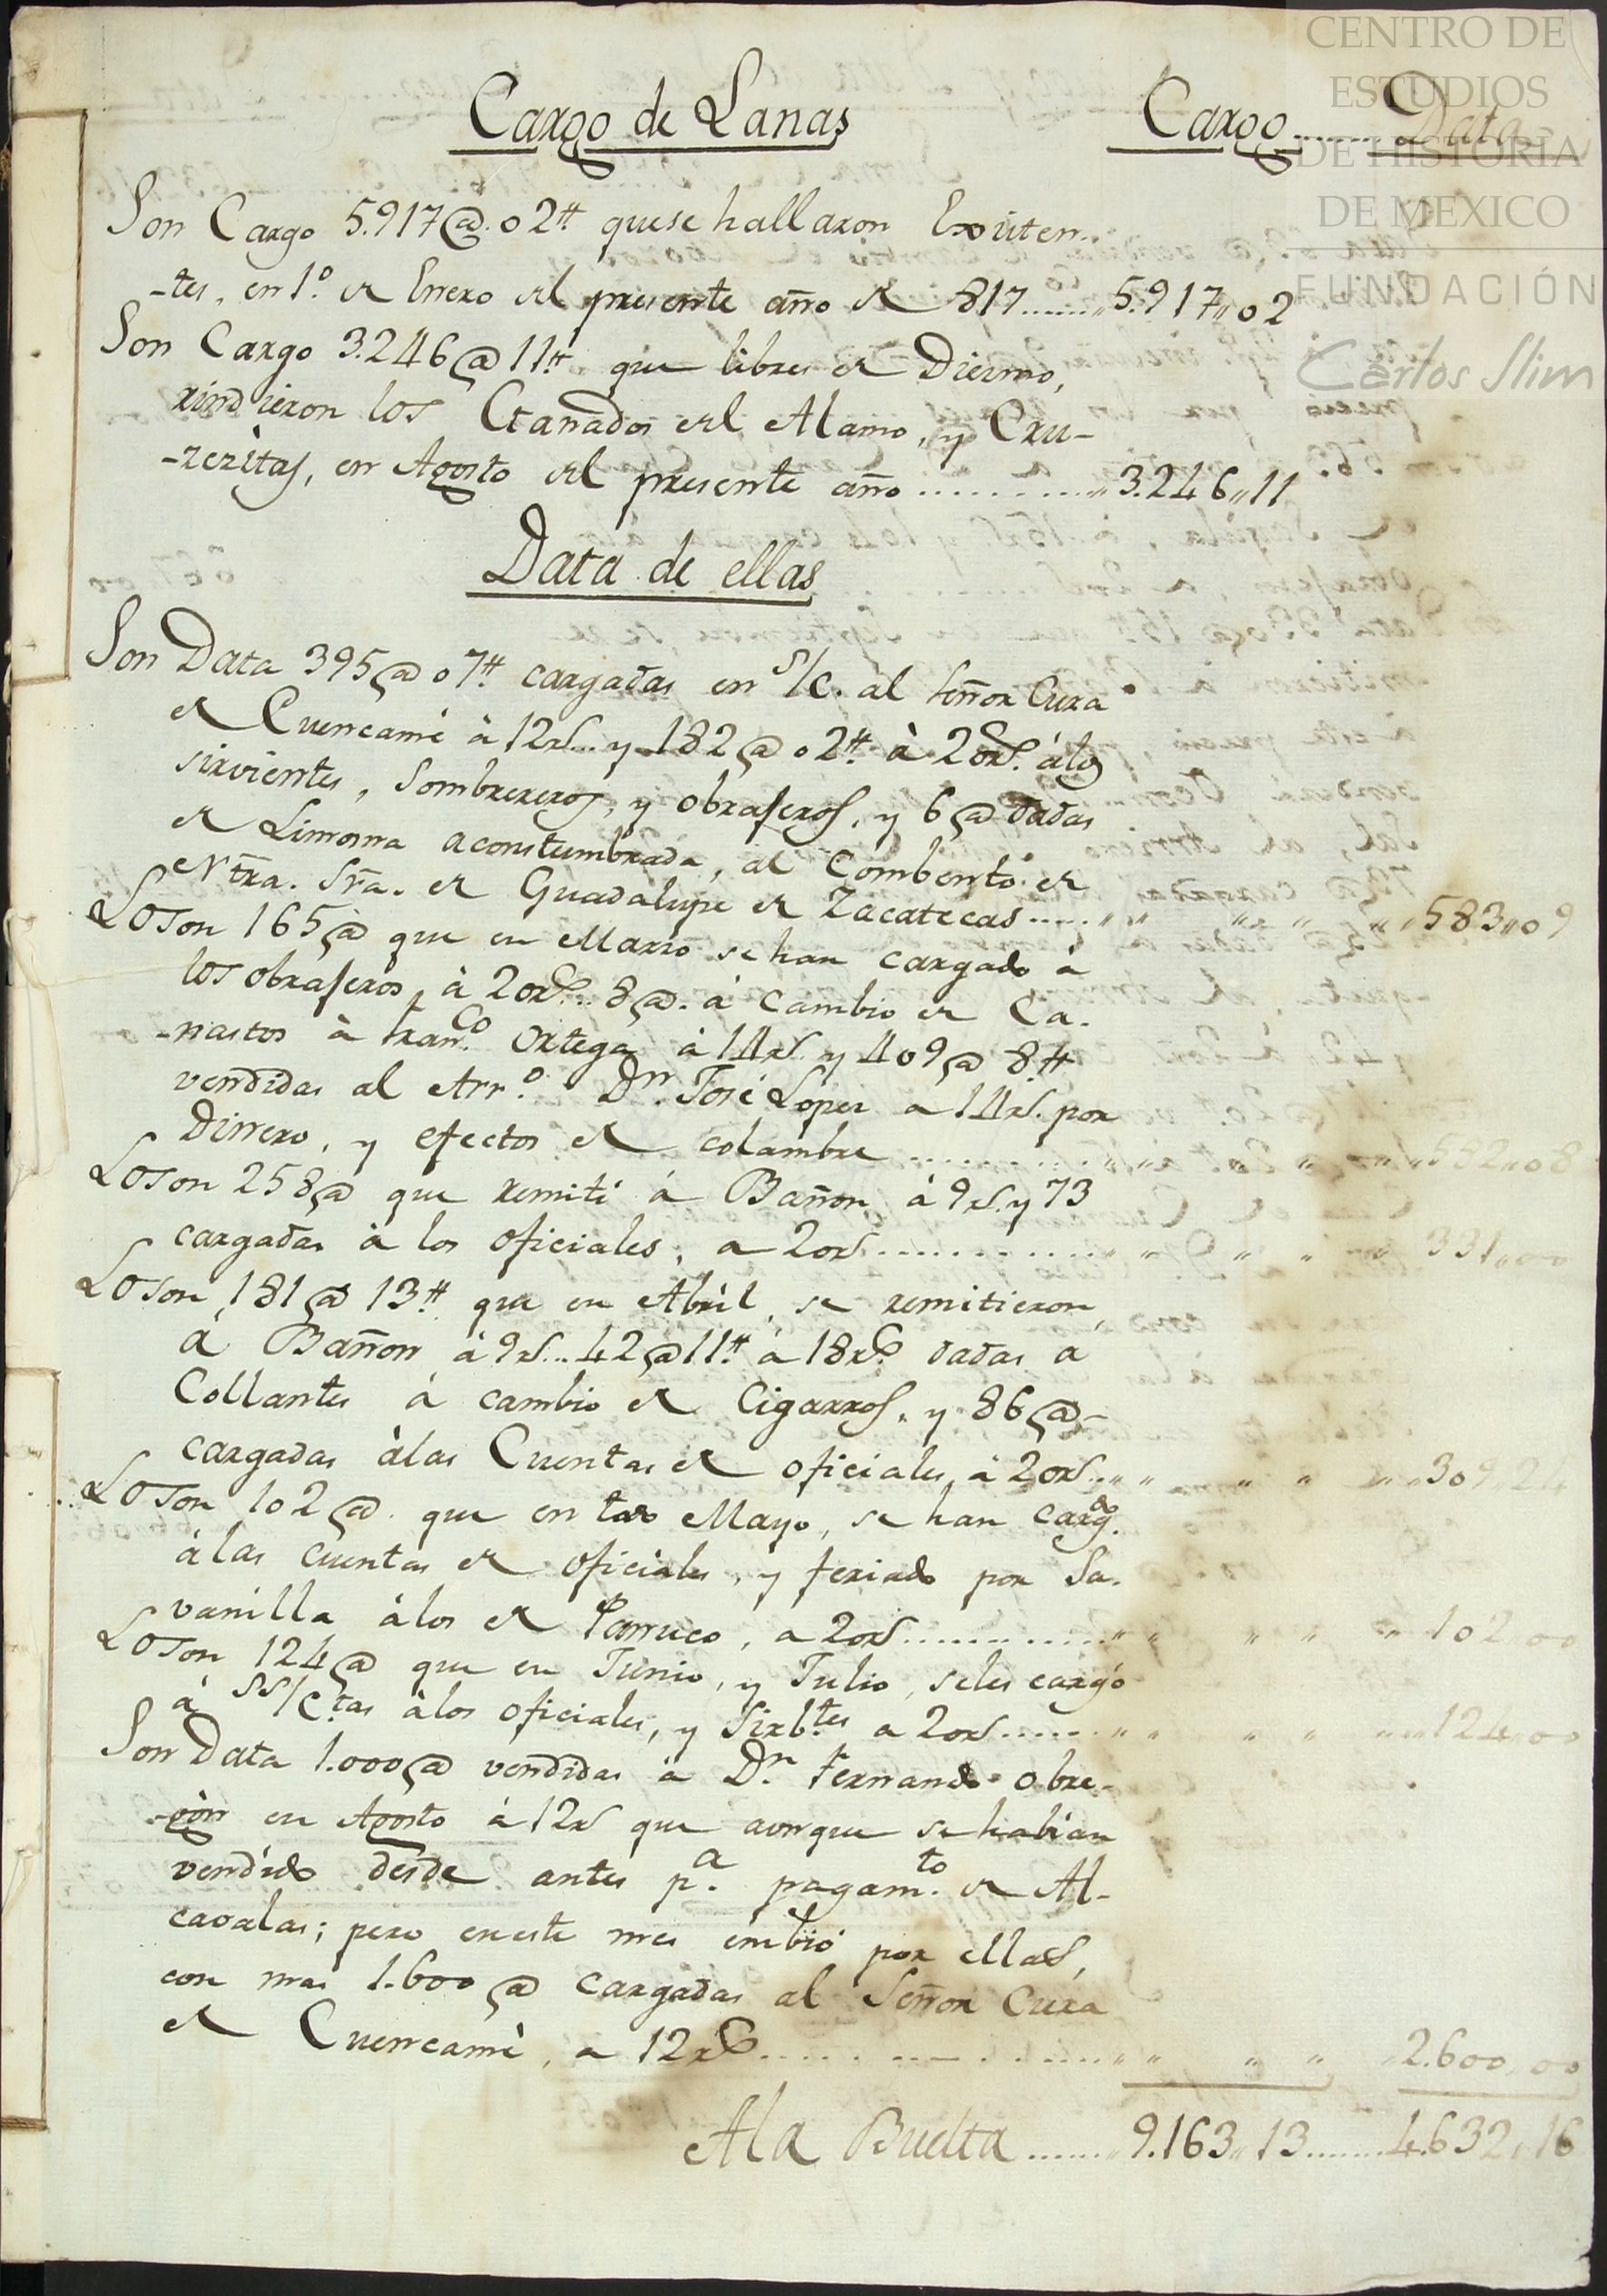 CENTRO DE
ESTUDIOS
DE HISTORIA
DE MEXICO
FUNDACIÓN
Carlos Slim
Cargo de Lanas Cargo ........ Data
Son Cargo 5.917@.02tt que se hallaron Existen-
-tes, en 1.º de Enero del presente año de 817......,,5.917,,02
Son Cargo 3.246@11tt que libres de Diezmo,
rindieron los Ganados del Alamo, y Cru-
-zezitas, en Agosto del presente año ..........,,3.246,,11
Data de ellas
Son Data 395@07tt cargadas en S/C. al Señor Cura
de Cuencamé à 12rs... y 182@02tt à 20rs. á los
sirvientes, Sombrereros, y obrajeros, y 6@ dadas
de Limosna acostumbrada, al Combento de
Ntra. Sra. de Guadalupe de Zacatecas.....,, ,, ,, ,, ,,583,,09
Lo son 165@ que en Marzo se han cargado à
los obrajeros, à 20rs... 8@. à cambio de Ca-
-nastos à Franco. Ortega à 14rs. y 409@ 8tt
vendidas al Arro. Dn. José Lopez a 14rs. por
Dinero, y efectos de colambre ..........,, ,, ,, ,,582,,08
Lo son 258@ que remití á Bañon à 9rs. y 73
cargadas à los oficiales, a 20rs............,, ,, ,, ,, ,, 331,,00
Lo son 181@ 13tt que en Abril se remitieron
à Bañon à 9rs... 42@11tt à 18rs. dadas à
Collantes á cambio de Cigarros, y 86@-
cargadas à las Cuentas de oficiales, à 20rs..,, ,, ,, ,, ,,309,,24
Lo son 102@ que en Mayo, se han cargdo.
à las cuentas de oficiales, y feriado por Sa-
vanilla à los de Parruco, a 20rs............,, ,, ,, ,, ,, 102,,00
Lo son 124@ que en Junio, y Julio, se les cargó
à SS/Ctas à los oficiales, y Sirbtes a 20rs......,, ,, ,, ,, ,,124,,00
Son Data 1.000@ vendidas à Dn. Fernando Obre-
-gòn en Agosto à 12rs que aunque se habian
vendido desde antes pa. pagamto. de Al-
cavalas; pero en este mes embió por ellas,
con mas 1.600@ cargadas al Señor Cura
de Cuencamè, a 12rs............,, ,, ,, ,, ,,2.600,,00
A la Buelta .......,,9.163,,13.......4.632,,16